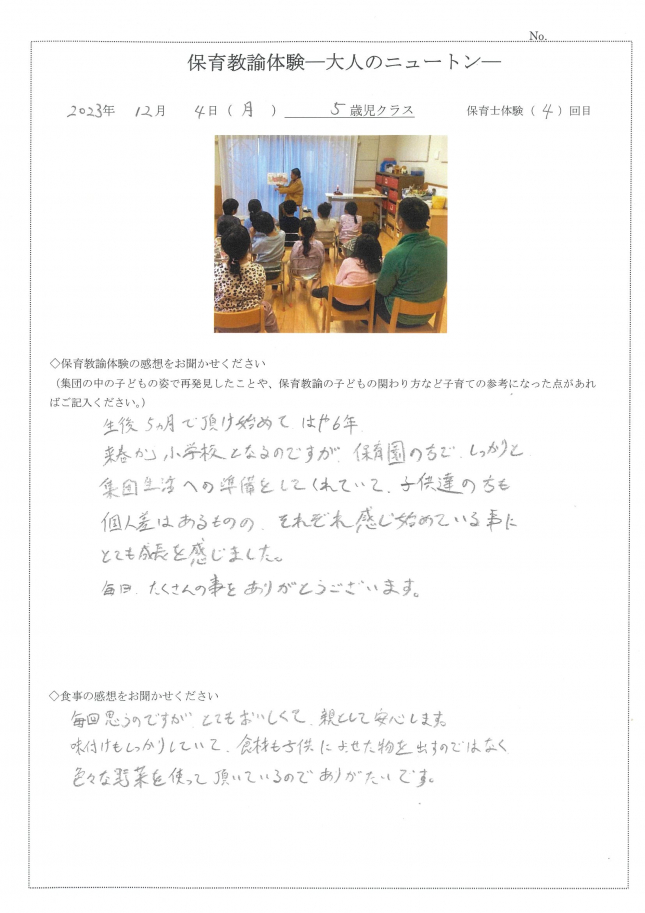 No.
保育教諭体験―大人のニュートン―
2023年 12月 4日(月) 5歳児クラス 保育士体験(4)回目
◇保育教諭体験の感想をお聞かせください
(集団の中の子どもの姿で再発見したことや、保育教諭の子どもの関わり方など子育ての参考になった点があれ
ばご記入ください。)
生後5ヵ月で頂け始めて はや6年
来春から小学校となるのですが、保育園の方で、しっかりと
集団生活への準備をしてくれていて、子供達の方も
個人差はあるものの、それぞれ感じ始めている事に
とても成長を感じました。
毎回、たくさんの事をありがとうございます。
◇食事の感想をお聞かせください
毎回思うのですが、とてもおいしくて、親として安心します。
味付けもしっかりしていて、食材も子供によせた物を出すのではなく
色々な野菜を使って頂いているのでありがたいです。